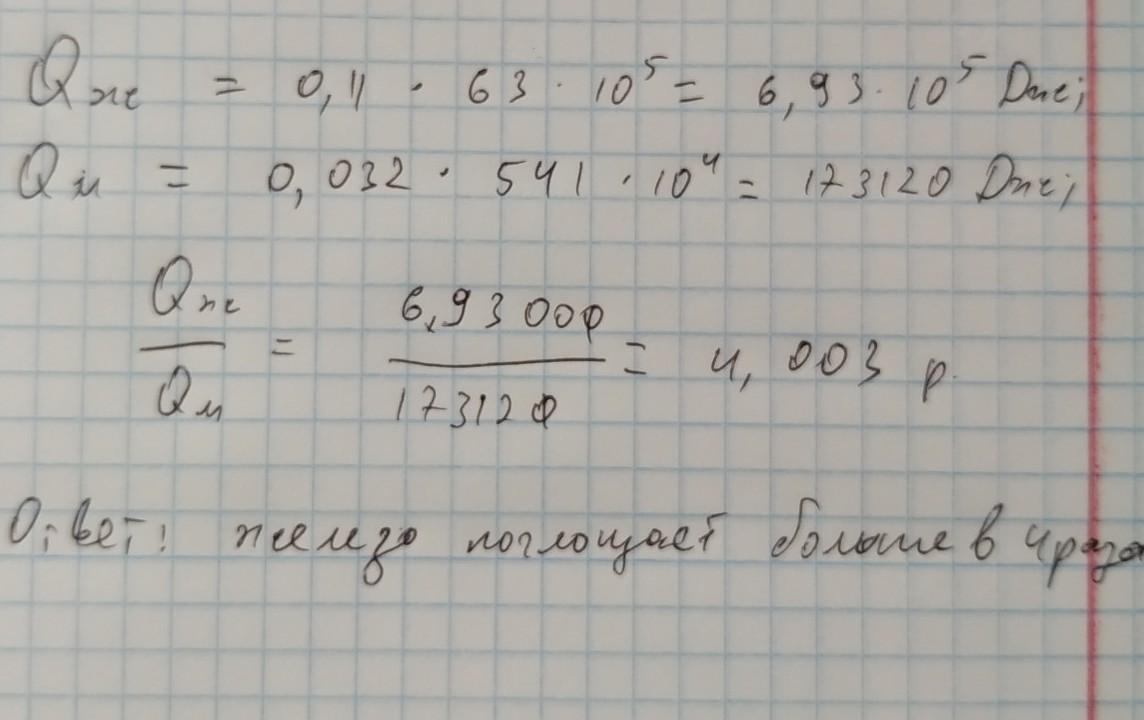 Qж = 0,11 · 63 · 10⁵ = 6,93 · 10⁵ Дж;
Qм = 0,032 · 541 · 10⁴ = 173120 Дж;
Qж / Qм = 6,93000 / 173120 = 4,003 р.
Ответ: железо поглощает больше в 4 раза